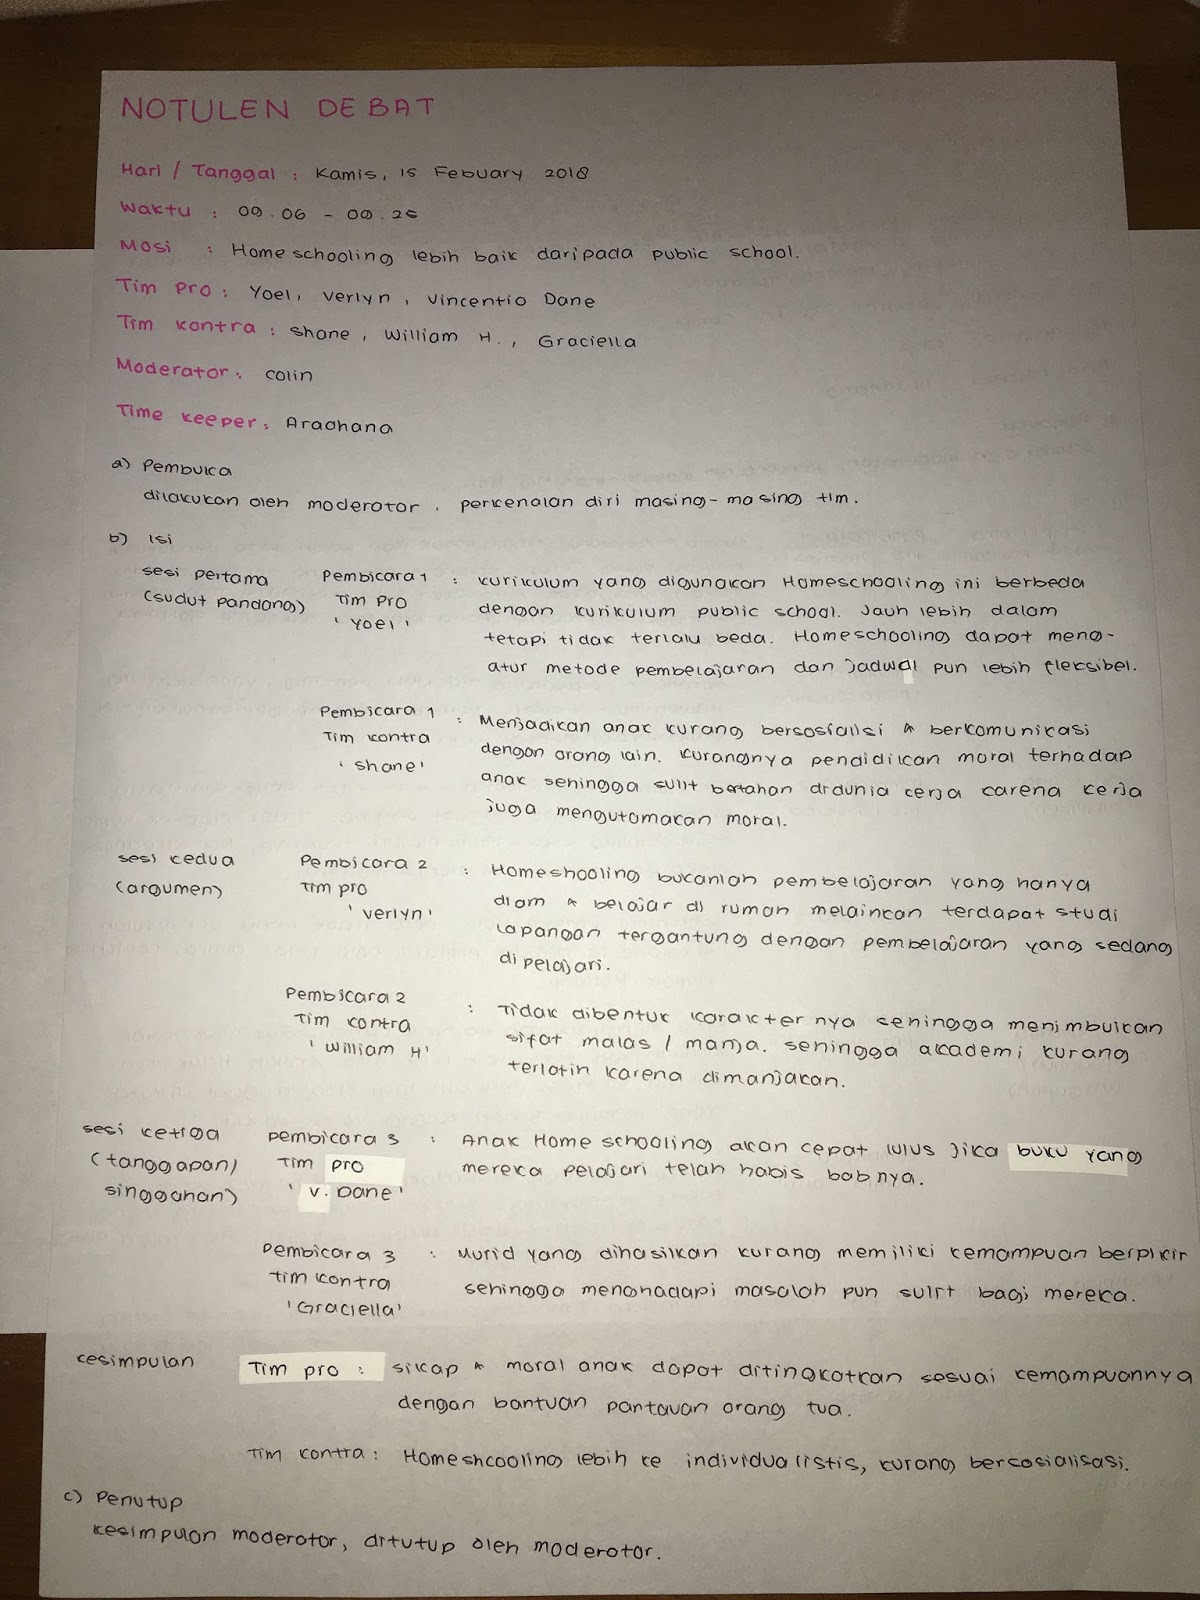 NOTULEN DEBAT
Hari / Tanggal : Kamis, 15 Febuary 2018
Waktu : 09.06 - 09.26
Mosi : Home schooling lebih baik daripada public school.
Tim Pro : Yoel, Verlyn, Vincentio Dane
Tim kontra : Shane, William H., Graciella
Moderator : Colin
Time keeper : Aradhana
a) Pembuka
dilakukan oleh moderator, perkenalan diri masing-masing tim.
b) Isi
sesi pertama Pembicara 1 : kurikulum yang digunakan Homeschooling ini berbeda
(sudut pandang) Tim Pro dengan kurikulum public school. Jauh lebih dalam
'Yoel' tetapi tidak terlalu beda. Homeschooling dapat meng-
atur metode pembelajaran dan jadwal pun lebih fleksibel.
Pembicara 1 : Menjadikan anak kurang bersosialisi & berkomunikasi
Tim kontra dengan orang lain. Kurangnya pendidikan moral terhadap
'shane' anak sehingga sulit bertahan didunia kerja karena kerja
juga mengutamakan moral.
sesi kedua Pembicara 2 : Homeshooling bukanlah pembelajaran yang hanya
(argumen) Tim pro diam & belajar di rumah melainkan terdapat studi
'verlyn' lapangan tergantung dengan pembelajaran yang sedang
dipelajari.
Pembicara 2 : Tidak dibentuk karakternya sehingga menimbulkan
Tim kontra sifat malas / manja. sehingga akademi kurang
'William H' terlatih karena dimanjakan.
sesi ketiga pembicara 3 : Anak Home schooling akan cepat lulus jika buku yang
(tanggapan/ Tim pro mereka pelajari telah habis babnya.
singgahan) 'V. Dane'
Pembicara 3 : Murid yang dihasilkan kurang memiliki kemampuan berpikir
tim kontra sehingga menghadapi masalah pun sulit bagi mereka.
'Graciella'
kesimpulan Tim pro : sikap & moral anak dapat ditingkatkan sesuai kemampuannya
dengan bantuan pantauan orang tua.
Tim kontra : Homeshcooling lebih ke individualistis, kurang bersosialisasi.
c) Penutup
kesimpulan moderator, ditutup oleh moderator.